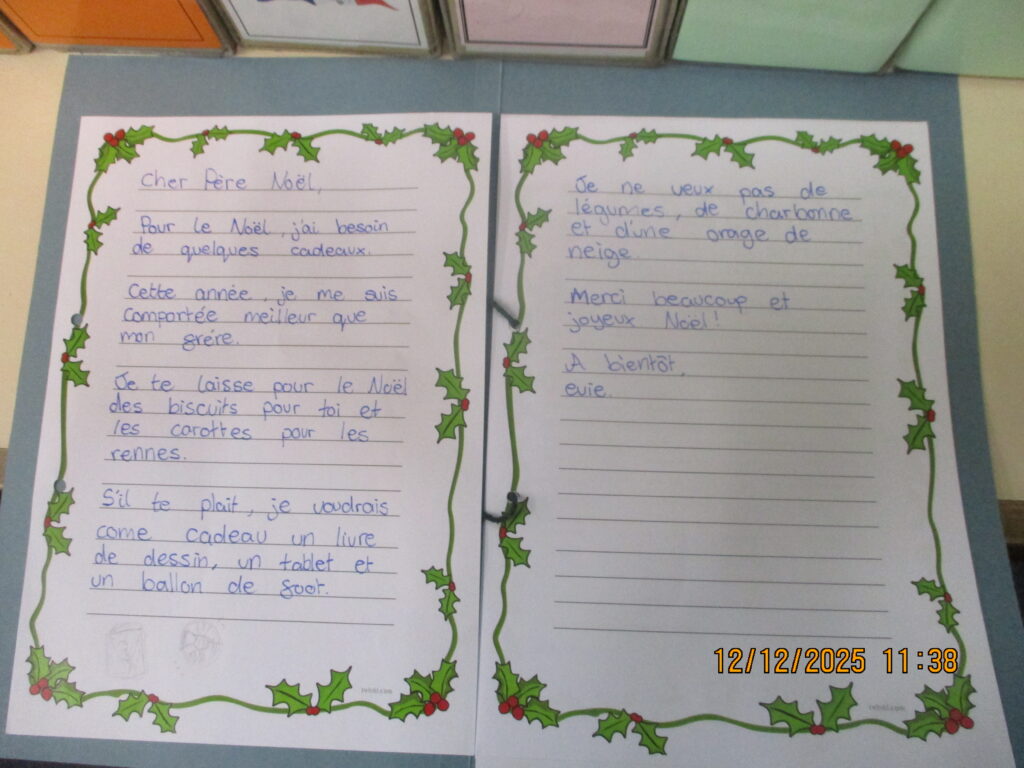 Cher Père Noël,
Pour le Noël, j'ai besoin
de quelques cadeaux.
Cette année, je me suis
comportée meilleur que
mon grére.
Je te laisse pour le Noël
des biscuits pour toi et
les carottes pour les
rennes.
S'il te plait, je voudrais
come cadeau un livre
de dessin, un tablet et
un ballon de foot.
twinkl.com
Je ne veux pas de
légumes, de charbonne
et d'une orage de
neige.
Merci beaucoup et
joyeux Noël!
A bientôt,
evie.
twinkl.com
12/12/2025 11:38